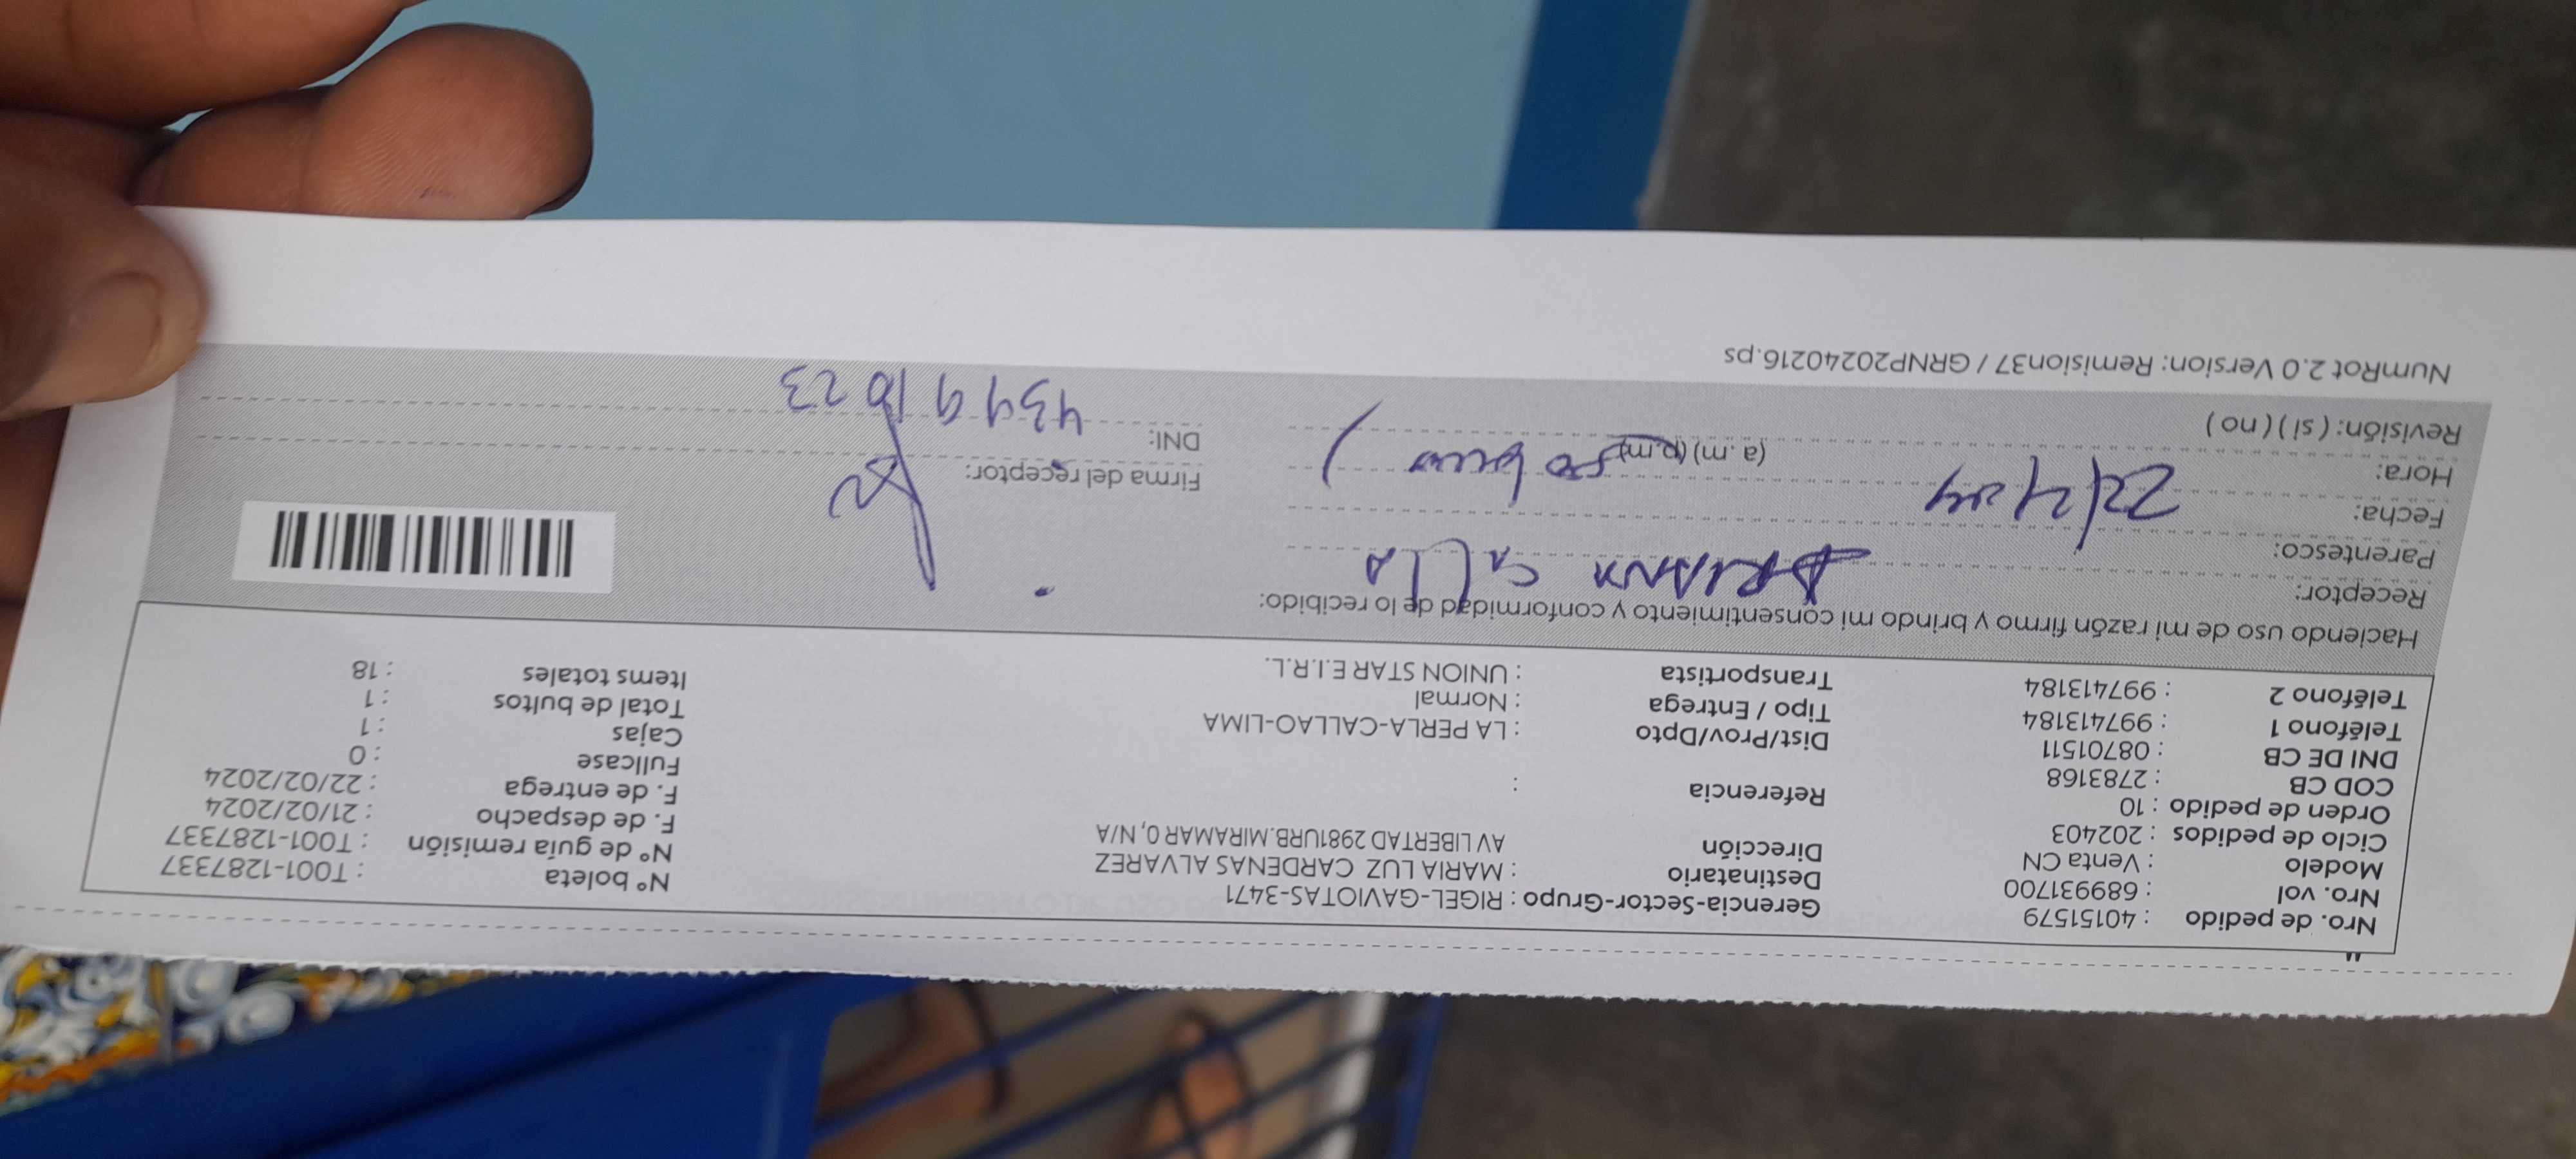 Nro. de pedido : 40151579
Nro. vol : 689931700
Modelo : Venta CN
Ciclo de pedidos : 202403
Orden de pedido : 10
COD CB : 2783168
DNI DE CB : 08701511
Teléfono 1 : 997413184
Teléfono 2 : 997413184
Gerencia-Sector-Grupo : RIGEL-GAVIOTAS-3471
Destinatario : MARIA LUZ CARDENAS ALVAREZ
Dirección AV LIBERTAD 2981URB.MIRAMAR 0, N/A
Referencia :
Dist/Prov/Dpto : LA PERLA-CALLAO-LIMA
Tipo / Entrega : Normal
Transportista : UNION STAR E.I.R.L.
N° boleta : T001-1287337
N° de guía remisión : T001-1287337
F. de despacho : 21/02/2024
F. de entrega : 22/02/2024
Fullcase : 0
Cajas : 1
Total de bultos : 1
Items totales : 18
Haciendo uso de mi razón firmo y brindo mi consentimiento y conformidad de lo recibido:
Receptor:
Parentesco:
Fecha:
Hora: (a.m) (p.m)
Revisión: ( si ) ( no )
Firma del receptor:
DNI: 43991023
NumRot 2.0 Version: Remision37 / GRNP20240216.ps